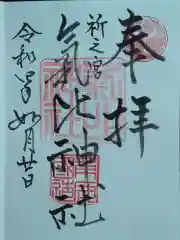 奉拝
祈之宮
氣比神社
令和 年如月廿日